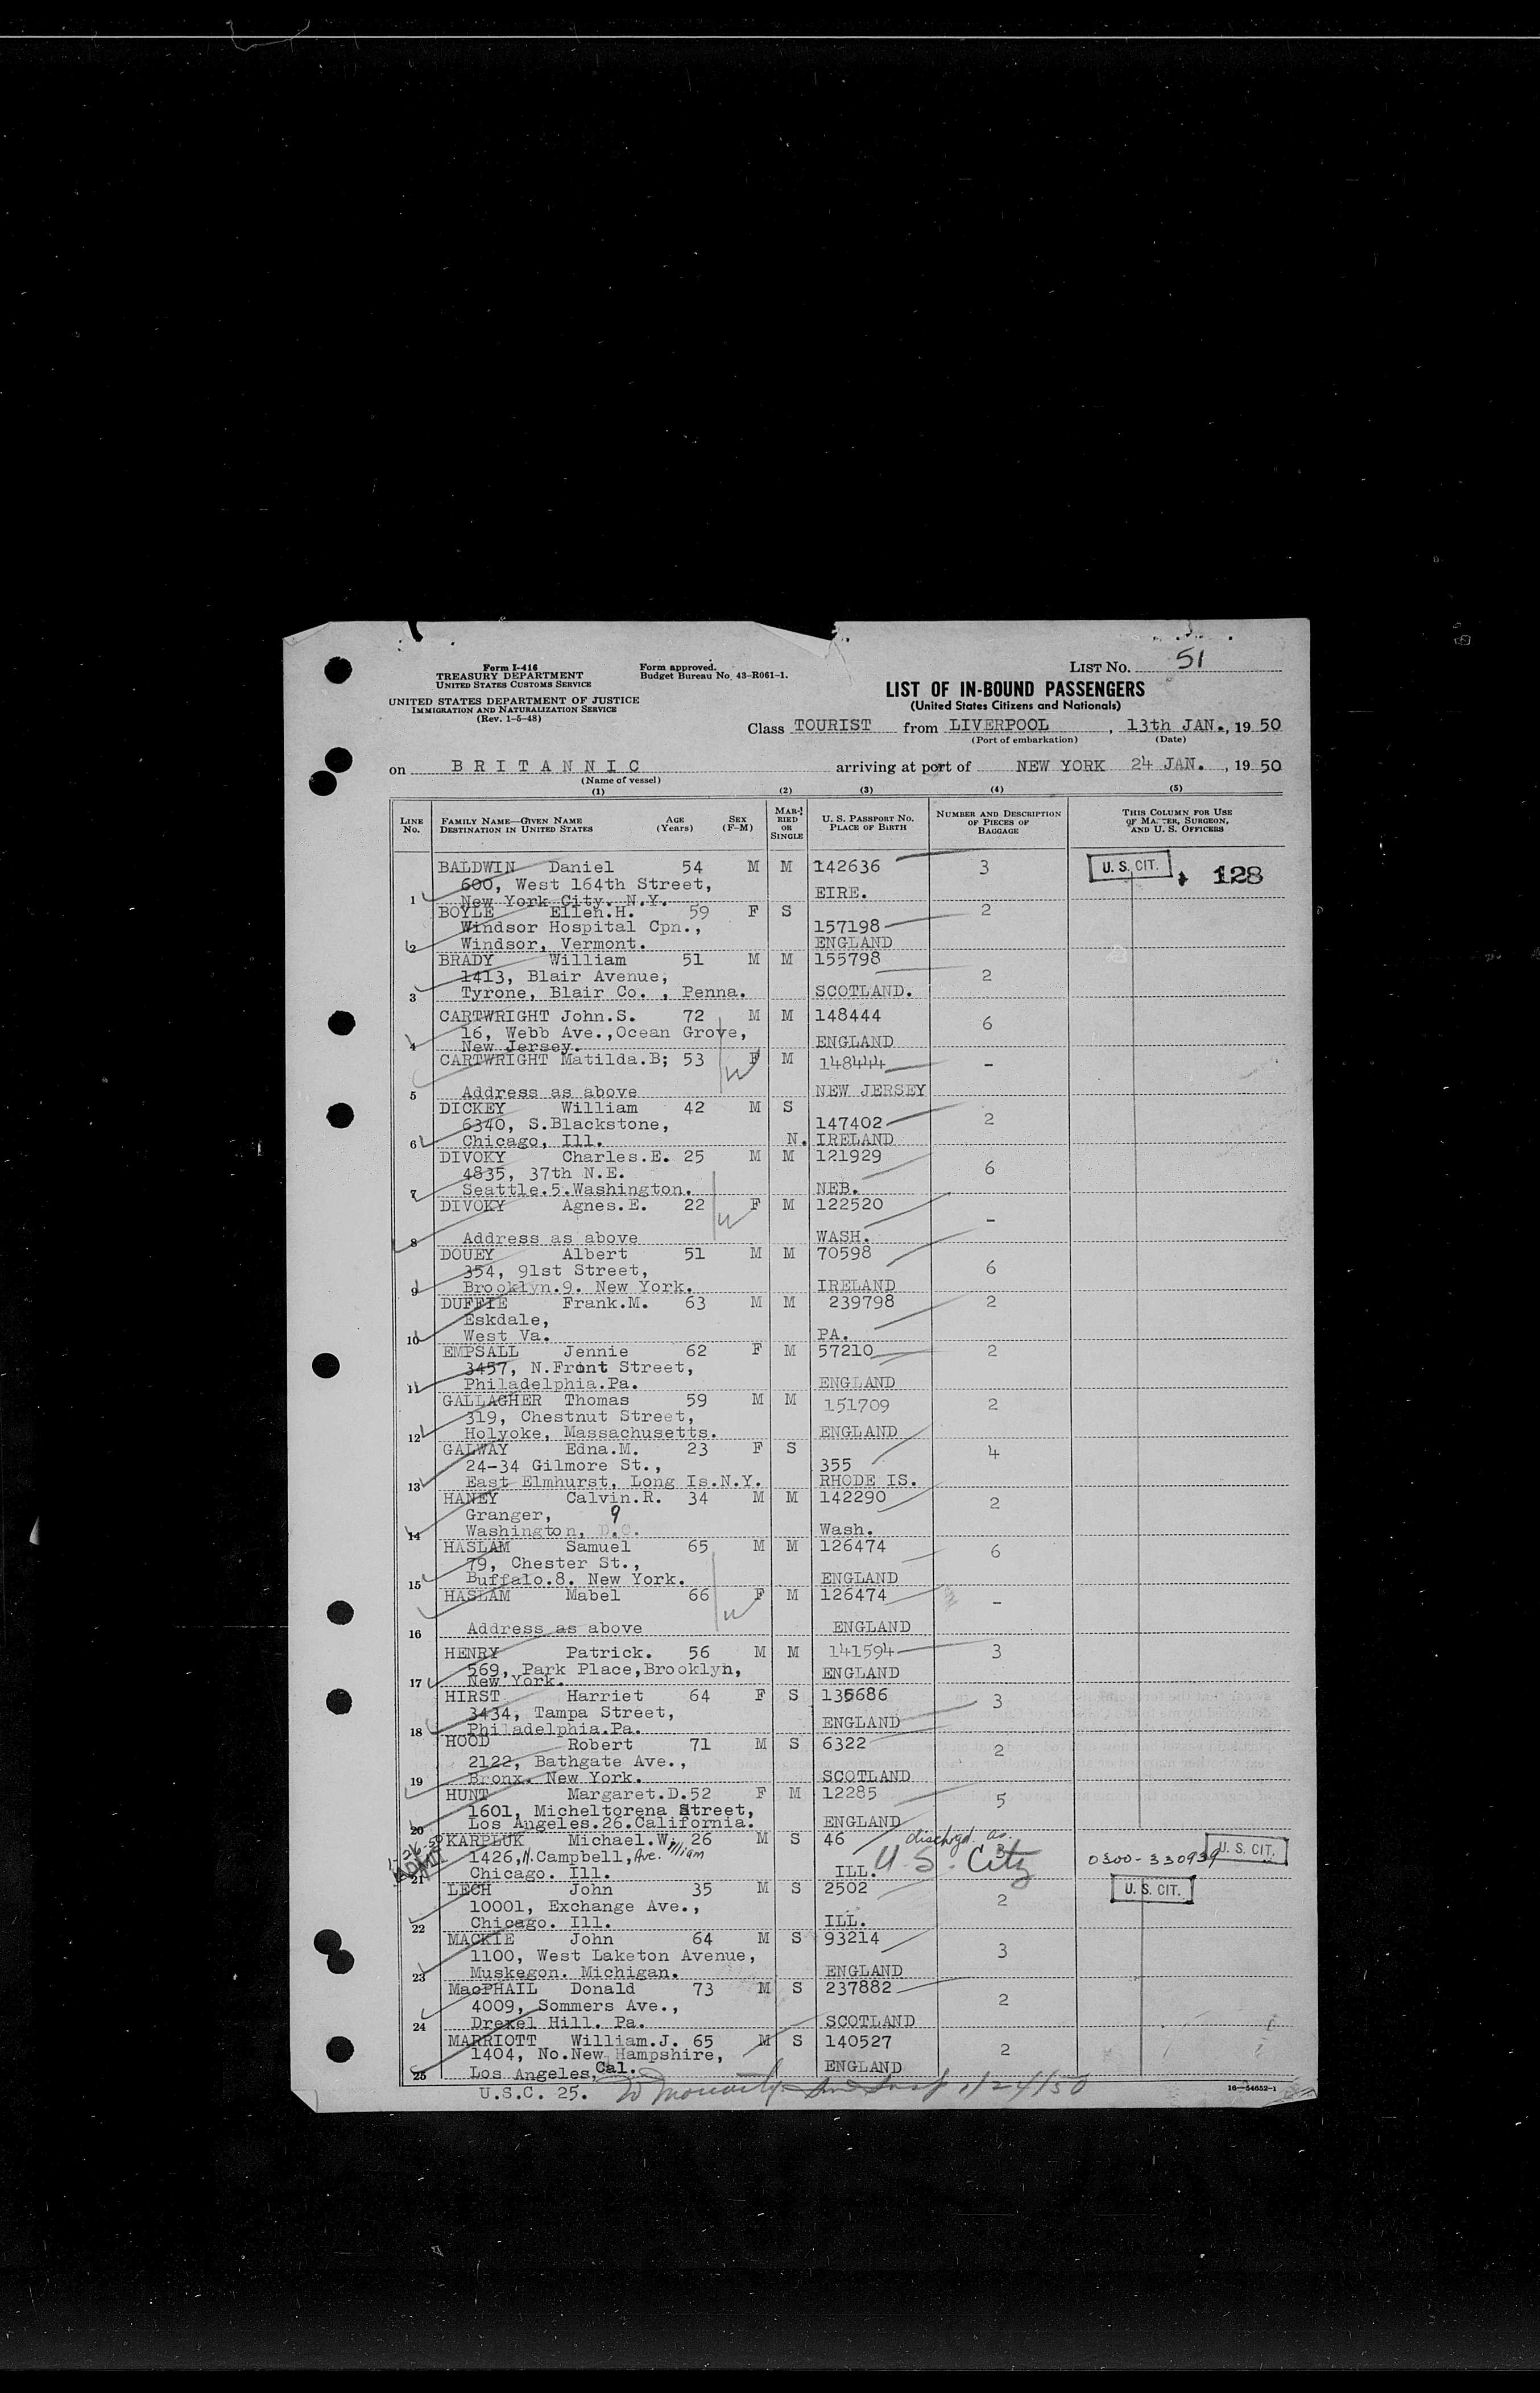 Form I-416
TREASURY DEPARTMENT
UNITED STATES CUSTOMS SERVICE
UNITED STATES DEPARTMENT OF JUSTICE
IMMIGRATION AND NATURALIZATION SERVICE
(Rev. 1-5-48)
Form approved.
Budget Bureau No. 43-R061-1.
LIST No. 51
LIST OF IN-BOUND PASSENGERS
(United States Citizens and Nationals)
Class TOURIST from LIVERPOOL, 13th JAN., 1950
(Port of embarkation) (Date)
on BRITANNIC arriving at port of NEW YORK 24 JAN., 1950
(Name of vessel)
(1) (2) (3) (4) (5)
LINE No. FAMILY NAME—GIVEN NAME DESTINATION IN UNITED STATES AGE (Years) SEX (F-M) MARRIED OR SINGLE U. S. PASSPORT No. PLACE OF BIRTH NUMBER AND DESCRIPTION OF PIECES OF BAGGAGE THIS COLUMN FOR USE OF MASTER, SURGEON, AND U. S. OFFICERS
BALDWIN Daniel 54 M M 142636 3 U. S. CIT. 128
600, West 164th Street,
1 New York City. N.Y. EIRE.
BOYLE Ellen.H. 59 F S 2
Windsor Hospital Cpn., 157198
2 Windsor, Vermont. ENGLAND
BRADY William 51 M M 155798
1413, Blair Avenue, 2
3 Tyrone, Blair Co. , Penna. SCOTLAND.
CARTWRIGHT John.S. 72 M M 148444
16, Webb Ave.,Ocean Grove, 6
4 New Jersey. ENGLAND
CARTWRIGHT Matilda.B; 53 F M 148444 -
W
5 Address as above NEW JERSEY
DICKEY William 42 M S
6340, S.Blackstone, 147402 2
6 Chicago, Ill. N. IRELAND
DIVOKY Charles.E. 25 M M 121929
4835, 37th N.E. 6
7 Seattle.5.Washington. NEB.
DIVOKY Agnes.E. 22 F M 122520
W -
8 Address as above WASH.
DOUEY Albert 51 M M 70598
354, 91st Street, 6
9 Brooklyn.9. New York. IRELAND
DUFFIE Frank.M. 63 M M 239798 2
Eskdale,
10 West Va. PA.
EMPSALL Jennie 62 F M 57210 2
3457, N.Front Street,
11 Philadelphia.Pa. ENGLAND
GALLAGHER Thomas 59 M M 151709 2
319, Chestnut Street,
12 Holyoke, Massachusetts. ENGLAND
GALWAY Edna.M. 23 F S 4
24-34 Gilmore St., 355
13 East Elmhurst, Long Is.N.Y. RHODE IS.
HANEY Calvin.R. 34 M M 142290 2
Granger, 9
14 Washington, D.C. Wash.
HASLAM Samuel 65 M M 126474 6
79, Chester St.,
15 Buffalo.8. New York. ENGLAND
HASLAM Mabel 66 F M 126474 -
W
16 Address as above ENGLAND
HENRY Patrick. 56 M M 141594 3
569, Park Place,Brooklyn,
17 New York. ENGLAND
HIRST Harriet 64 F S 135686 3
3434, Tampa Street,
18 Philadelphia.Pa. ENGLAND
HOOD Robert 71 M S 6322 2
2122, Bathgate Ave.,
19 Bronx. New York. SCOTLAND
HUNT Margaret.D. 52 F M 12285 5
1601, Micheltorena Street,
20 Los Angeles.26.California. ENGLAND
KARPLUK Michael.W. William 26 M S 46 dischrgd. as 3 U. S. CIT.
1426,N.Campbell, Ave. U. S. Citz 0300-330939
21 Chicago. Ill. ILL.
LECH John 35 M S 2502 2 U. S. CIT.
10001, Exchange Ave.,
22 Chicago. Ill. ILL.
MACKIE John 64 M S 93214 3
1100, West Laketon Avenue,
23 Muskegon. Michigan. ENGLAND
MacPHAIL Donald 73 M S 237882 2
4009, Sommers Ave.,
24 Drexel Hill. Pa. SCOTLAND
MARRIOTT William.J. 65 M S 140527 2
1404, No.New Hampshire,
25 Los Angeles, Cal. ENGLAND
U.S.C. 25. 1/24/50
16—54652-1